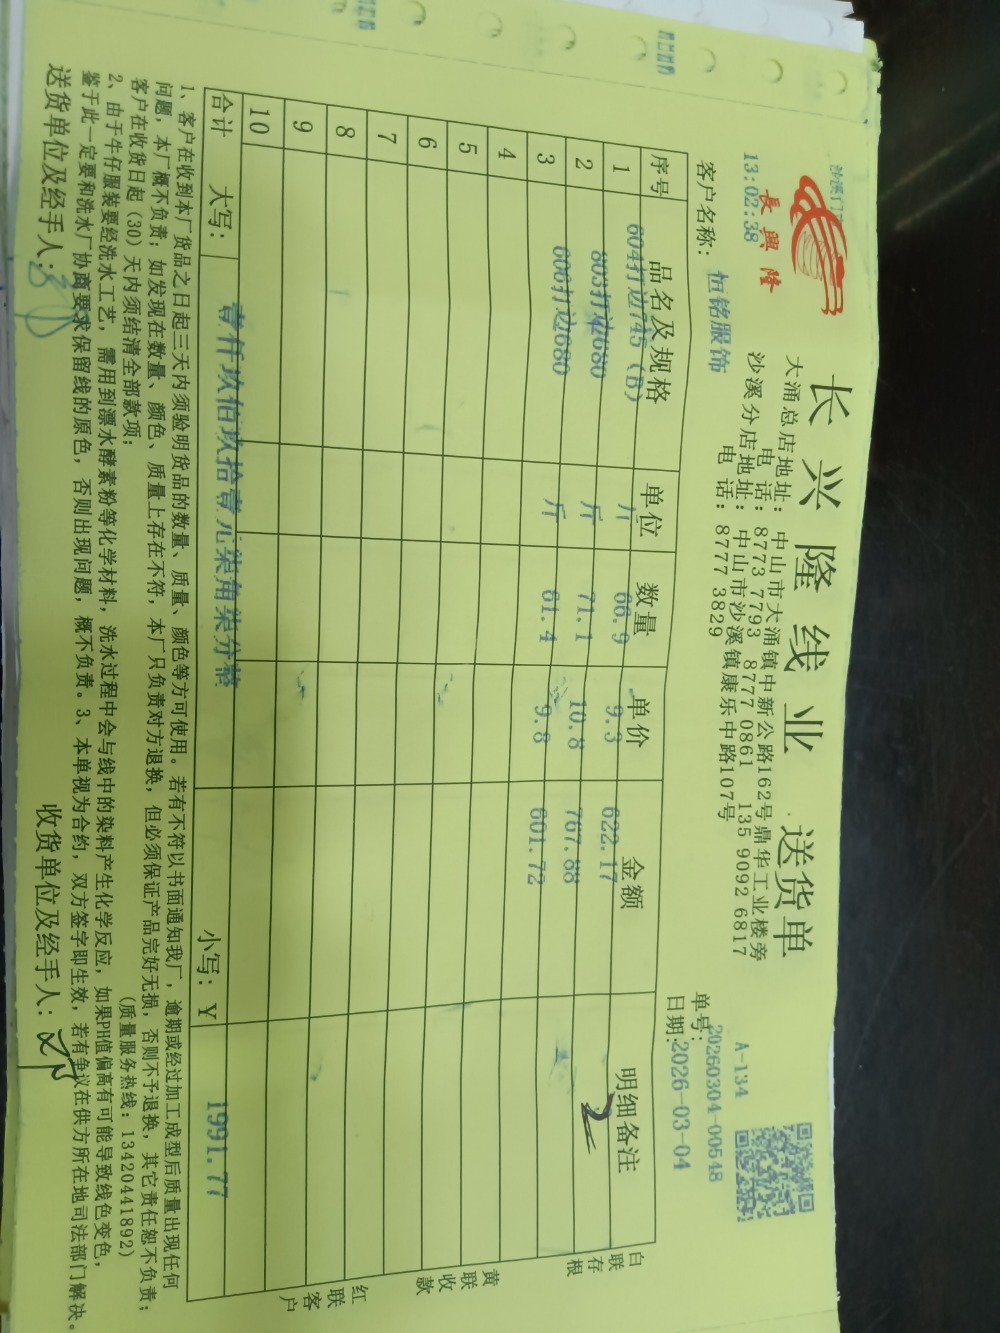 沙溪门
13:02:38
長興隆
长兴隆线业 送货单
大涌总店地址: 中山市大涌镇中新公路162号鼎华工业楼旁
电话: 8773 7793 8777 0861 135 9092 6817
沙溪分店地址: 中山市沙溪镇康乐中路107号
电话: 8777 3829
A-134
单号: 20260304-00548
日期: 2026-03-04
客户名称: 恒铭服饰
序号 品名及规格 单位 数量 单价 金额 明细备注
1 604打边745 (B) 斤 66.9 9.3 622.17
2 803打边680 斤 71.1 10.8 767.88
3 606打边680 斤 61.4 9.8 601.72
4
5
6
7
8
9
10
合计 大写: 壹仟玖佰玖拾壹元柒角柒分整 小写: Y 1991.77
白联存根
黄联收款
红联客户
1、客户在收到本厂货品之日起三天内须验明货品的数量、质量、颜色等方可使用。若有不符以书面通知我厂,逾期或经过加工成型后质量出现任何
问题,本厂概不负责;如发现在数量、颜色、质量上存在不符,本厂只负责对方退换,但必须保证产品完好无损,否则不予退换,其它责任恕不负责;
客户在收货日起(30)天内须结清全部款项;
(质量服务热线: 13420441892)
2、由于牛仔服装要经洗水工艺,需用到漂水酵素粉等化学材料,洗水过程中会与线中的染料产生化学反应,如果PH值偏高有可能导致线色变色,
鉴于此一定要和洗水厂协商要求保留线的原色,否则出现问题,概不负责。3、本单视为合约,双方签字即生效,若有争议在供方所在地司法部门解决。
送货单位及经手人: 收货单位及经手人: